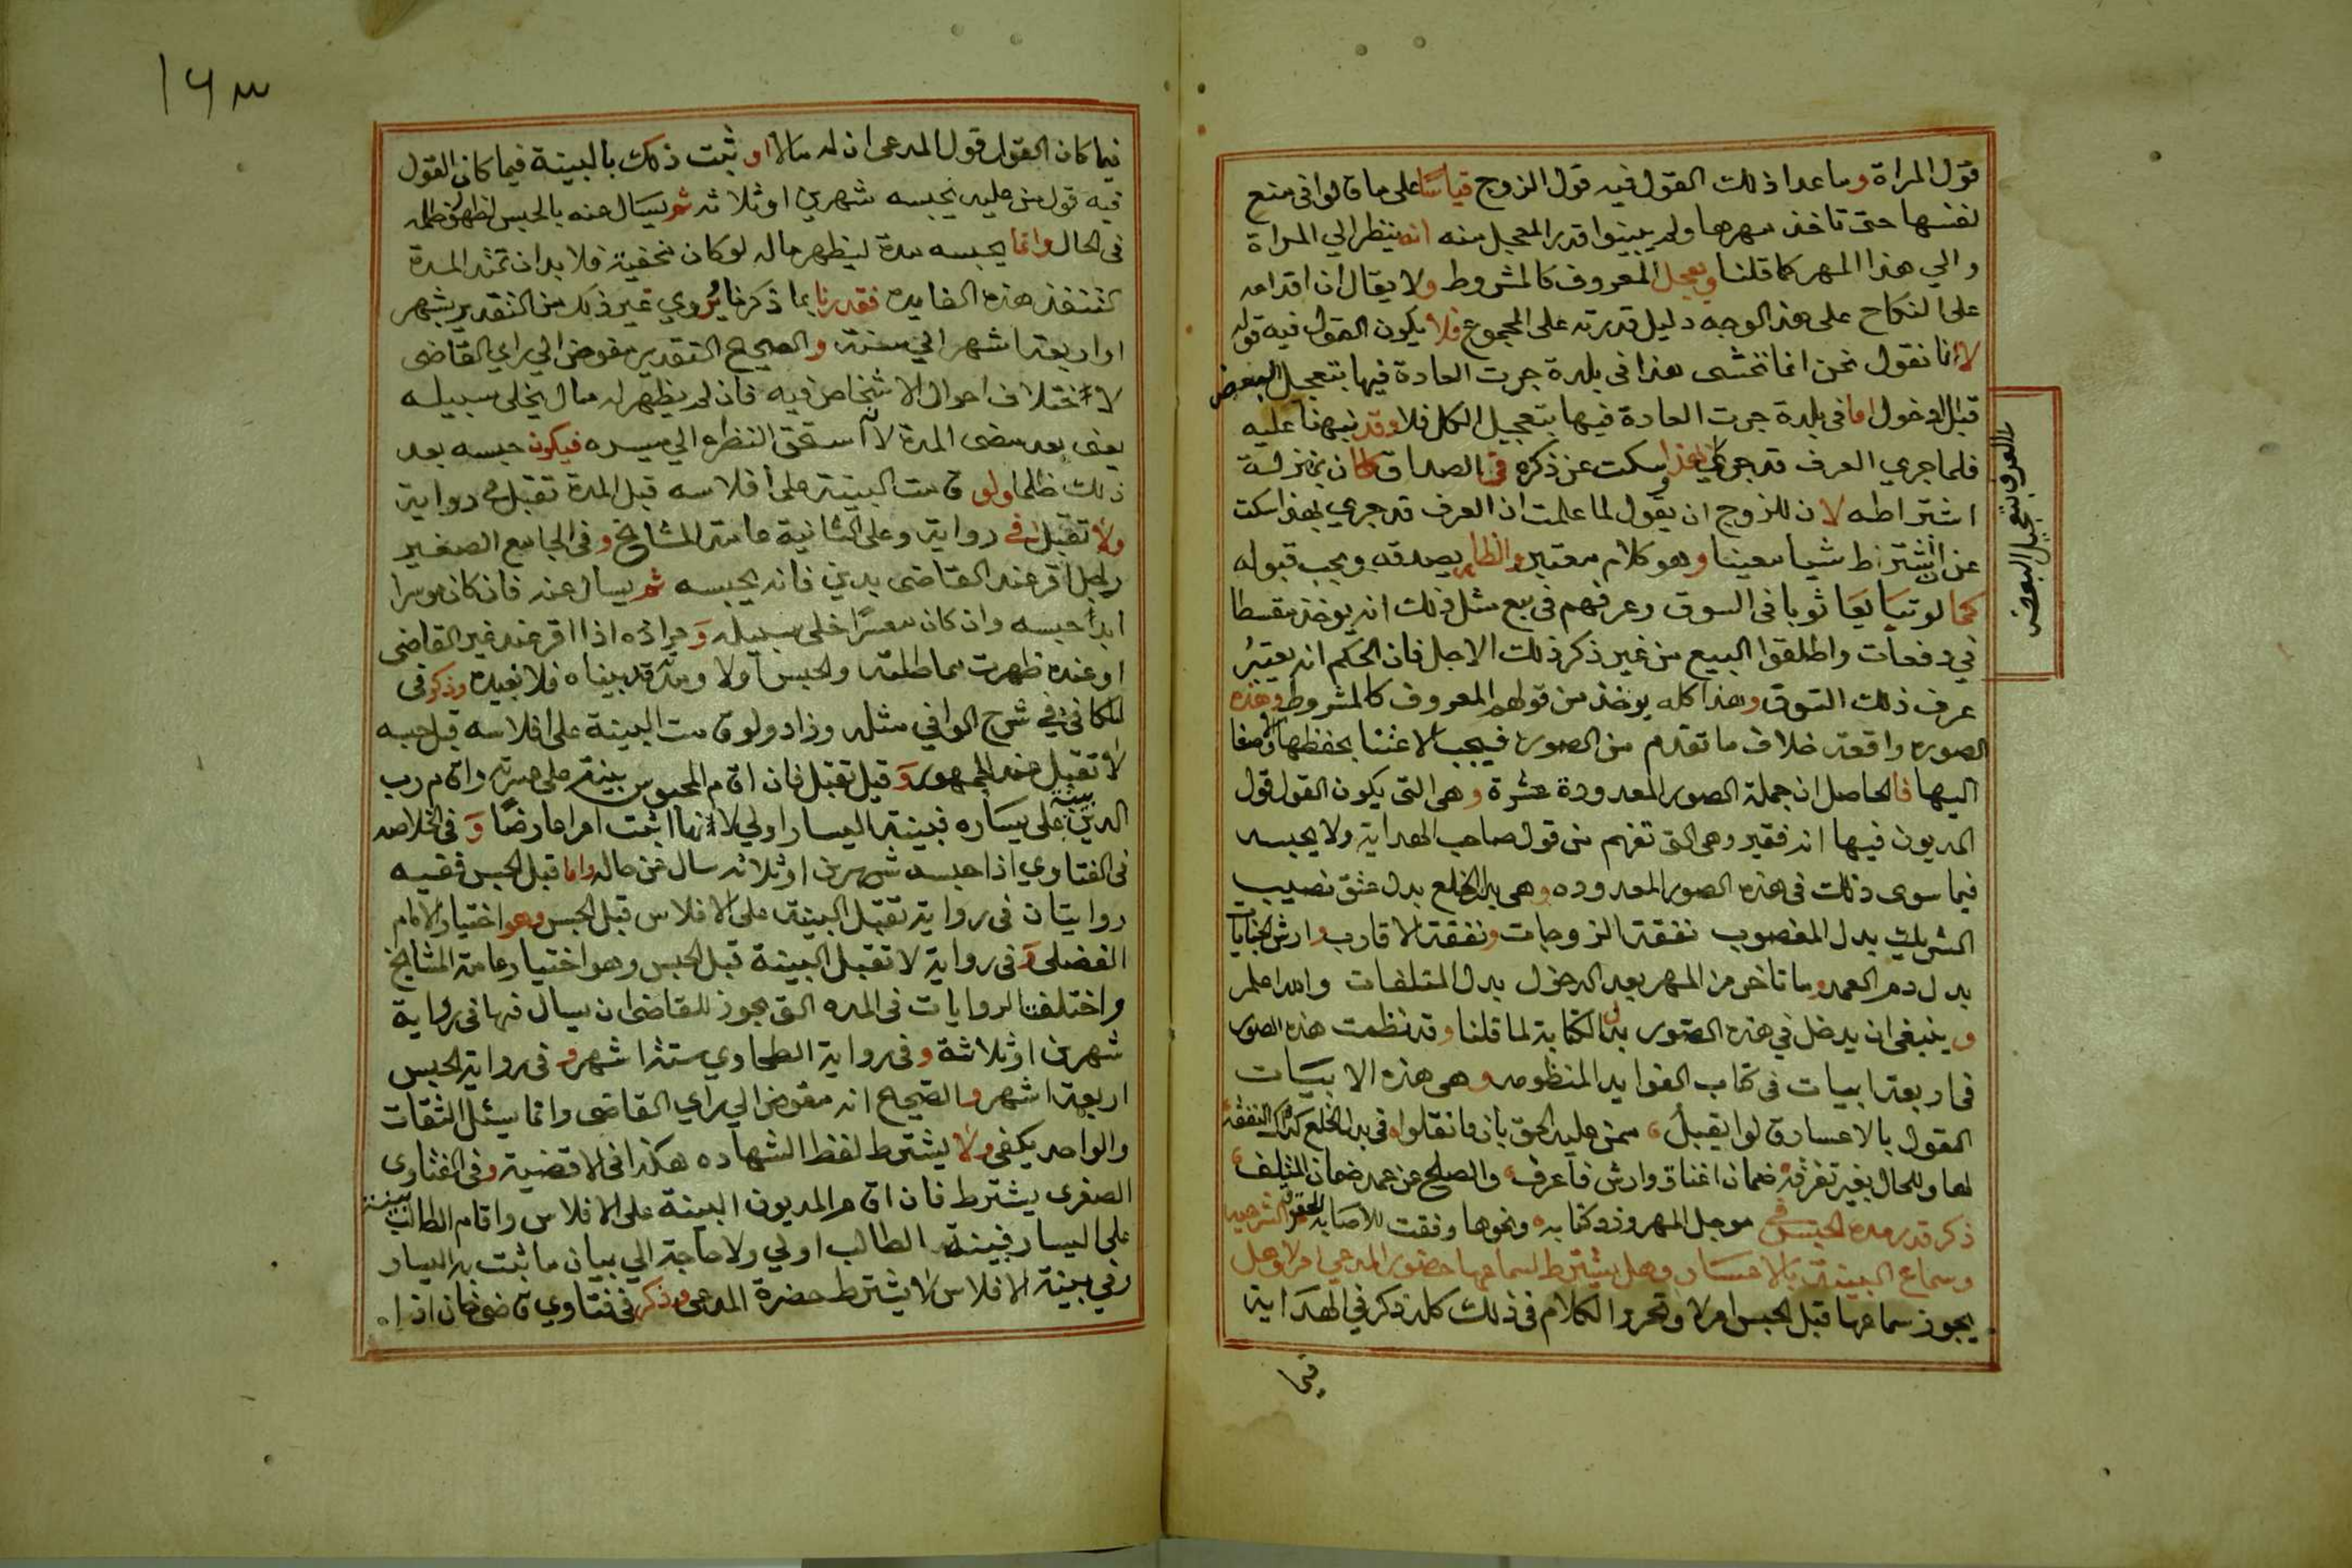 قول المراة وما عدا ذلك القول فيه قول الزوج قياسا على ما قالوا في منع
نفسها حتى تاخذ مهرها ولم يبينوا قدر المعجل منه انه ينظر الي المراة
والي هذا المهر كما قلنا ويعجل المعروف كالمشروط ولا يقال ان اقدامه
على النكاح على هذ الوجه دليل قدرته على المجموع فلا يكون القول فيه قوله
لانا نقول نحن انما نخشى هذا في بلدة جرت العادة فيها بتعجيل البعض
قبل الدخول اما في بلدة جرت العادة فيها بتعجيل الكل فلا وقد نبهنا عليه
فلما جري العرف قد جري بهذا وسكت عن ذكره في الصداق كان بمنزلة
اشتراطه لان للزوج ان يقول لما علمت ان العرف قد جري بهذا سكت
عن ان اشترط شيا معينا وهو كلام معتبر والظاهر يصدقه ويجب قبوله
كما لو تبايعا ثوبا في السوق وعرفهم في بيع مثل ذلك انه يوخذ مقسطا
في دفعات واطلقوا البيع من غير ذكر ذلك الاجل فان الحكم انه يعتبر
عرف ذلك السوق وهذا كله يوخذ من قولهم المعروف كالمشروط وهذه
الصورة واقعة خلاف ما تقدم من الصور فيجب الاعتنا بحفظها والاصغا
اليها فالحاصل ان جملة الصور المعدودة عشرة وهى التي يكون القول قول
المديون فيها انه فقير وهى التي تفهم من قول صاحب الهداية ولا يحبسه
فيما سوى ذلك في هذه الصور المعدوده وهى بدل الخلع بدل عتق نصيب
الشريك بدل المغصوب نفقة الزوجات ونفقة الاقارب وارش الجنايات
بدل دم العمد وما تاخر من المهر بعد الدخول بدل المتلفات والله اعلم
وينبغى ان يدخل في هذه الصور بدل الكتابة لما قلنا وقد نظمت هذه الصور
في اربعة ابيات في كتاب الفوايد المنظومه وهى هذه الابيات
القول بالاعسار لو يقبل ممن عليه الحق بان ما نقلوا في بدل الخلع كذاك النفقة
لها وللحال بغير تفرقه ضمان اعتاق وارش فاعرف والصلح عن عمد ضمان المتلف
موجل المهر وزد كتابه ونحوها وفقت للاصابه
ذكر قدر مدة الحبس في الحقوق الشرعيه
وسماع البينة بالاعسار وهل يشترط لسماعها حضور المدعي ام لا وهل
يجوز سماعها قبل الحبس ام لا وتحرير الكلام في ذلك كله ذكر في الهداية
فيما
بتعجيل البعض
١٦٣
فيما كان القول قول المدعى ان له مالا او ثبت ذلك بالبينة فيما كان القول
فيه قول من عليه يحبسه شهرين او ثلاثه ثم يسال عنه بالحبس لظهور ظلمه
في الحال وانما يحبسه مدة ليظهر ماله لو كان يخفيه فلا بد ان تمتد المدة
لتنفذ هذه الفايده فقدرنا بما ذكرنا يروي غير ذلك من التقدير بشهر
او اربعة اشهر الي ستة والصحيح التقدير مفوض الي راي القاضى
لاختلاف احوال الاشخاص فيه فان لم يظهر له مال يخلى سبيله
يعنى بعد مضى المدة لانه استحق النظرة الي ميسره فيكون حبسه بعد
ذلك ظلما ولو قامت البينة على افلاسه قبل المدة تقبل في رواية
ولا تقبل في رواية وعلى الثانية عامة المشايخ وفي الجامع الصغير
رجل اقر عند القاضى بدين فانه يحبسه ثم يسال عنه فان كان موسرا
ابد حبسه وان كان معسرا خلى سبيله ومراده اذا اقر عند غير القاضى
او عنده ظهرت مماطلته والحبس اولا ومدته قد بيناه فلا نعيده وذكر في
الكافى في شرح الوافي مثله وزاد ولو قامت البينة على افلاسه قبل حبسه
لا تقبل عند الجمهور وقيل تقبل فان اقام المحبوس بينة على عسرته واقام رب
الدين بينة على يساره فبينة اليسار اولي لانها اثبتت امرا عارضا وفي الخلاصه
في الفتاوي اذا حبسه شهرين او ثلاثه سال عن حاله واما قبل الحبس ففيه
روايتان في رواية تقبل البينة على الافلاس قبل الحبس وهو اختيار الامام
الفضلى وفي رواية لا تقبل البينة قبل الحبس وهو اختيار عامة المشايخ
واختلفت الروايات في المده التي يجوز للقاضى ان يسال فيها في رواية
شهرين او ثلاثة وفي رواية الطحاوي ستة اشهر وفي رواية الحبس
اربعة اشهر والصحيح انه مفوض الي راي القاضى وانما يسئل الثقات
والواحد يكفي ولا يشترط لفظ الشهاده هكذا في الاقضية وفي الفتاوى
الصغرى يشترط فان اقام المديون البينة على الافلاس واقام الطالب بينة
على اليسار فبينة الطالب اولي ولا حاجة الي بيان ما ثبت به اليسار
وفي بينة الافلاس لا يشترط حضرة المدعى وذكر في فتاوي قاضى خان اذا